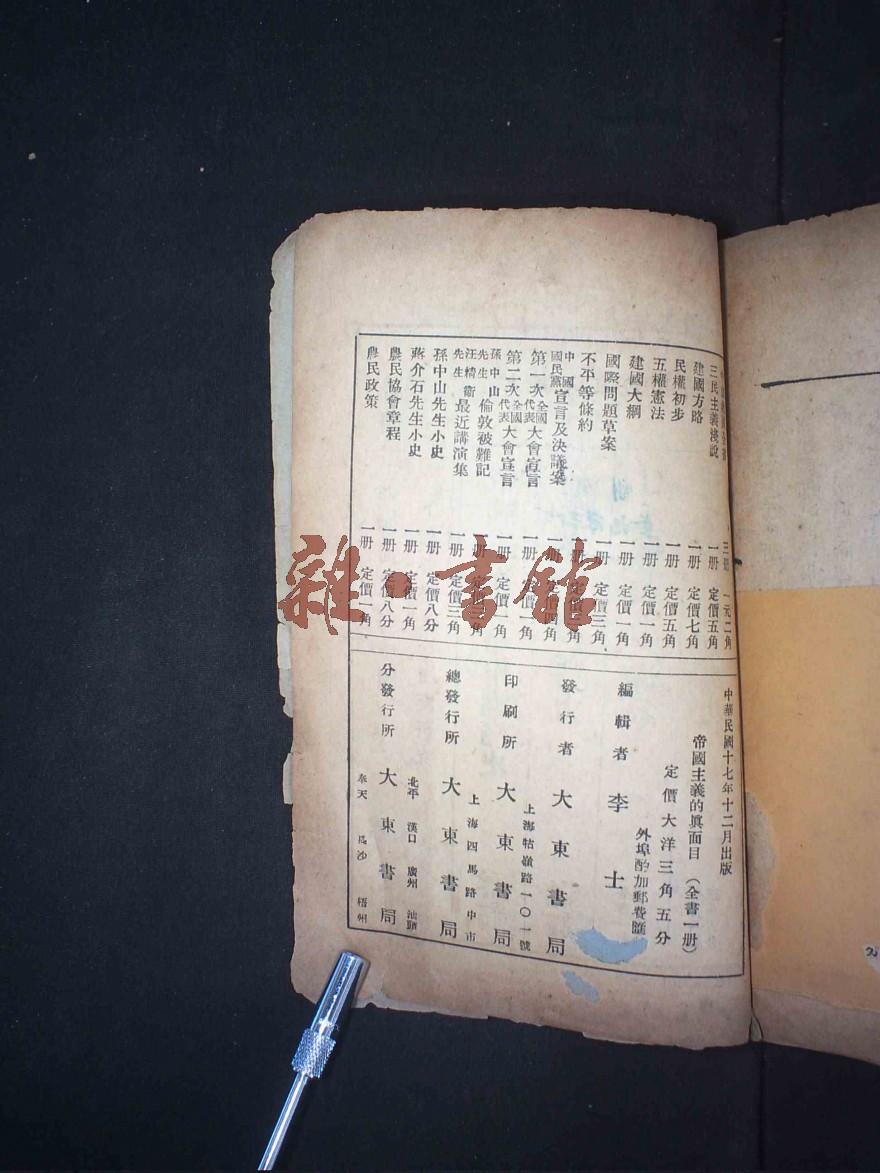 三民主義淺說 一册 定價五角
建國方略 一册 定價七角
民權初步 一册 定價五角
五權憲法 一册 定價一角
建國大綱 一册 定價一角
國際問題草案 一册 定價三角
不平等條約 一册
中國國民黨宣言及決議案 一册
第一次全國代表大會宣言 一册 定價一角
第二次全國代表大會宣言 一册 定價一角
孫中山先生倫敦被難記 一册
汪精衛先生最近講演集 一册 定價三角
孫中山先生小史 一册 定價八分
蔣介石先生小史 一册 定價一角
農民協會章程 一册 定價八分
農民政策 一册 定價一角
中華民國十七年十二月出版
帝國主義的眞面目（全書一册）
定價大洋三角五分
外埠酌加郵費匯
編輯者 李士
發行者 大東書局
上海牯嶺路一〇一號
印刷所 大東書局
上海四馬路中市
總發行所 大東書局
北平 漢口 廣州 汕頭
分發行所 大東書局
奉天 長沙 梧州
雜·書館